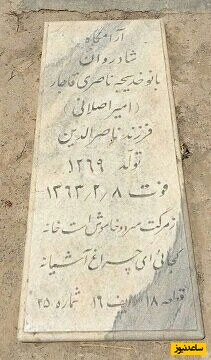 آرامگاه
شادروان
بانو خدیجه ناصری قاجار
(امیر اصلانی)
فرزند ناصرالدین
تولد
۱۲۶۹
فوت ۱۳۶۳٫۲٫۸
ز مرگت سرد و خاموش است خانه
کجائی ای چراغ آشیانه
قطعه ۱۸ ردیف ۱۶ شماره ۲۵
ساعدنیوز